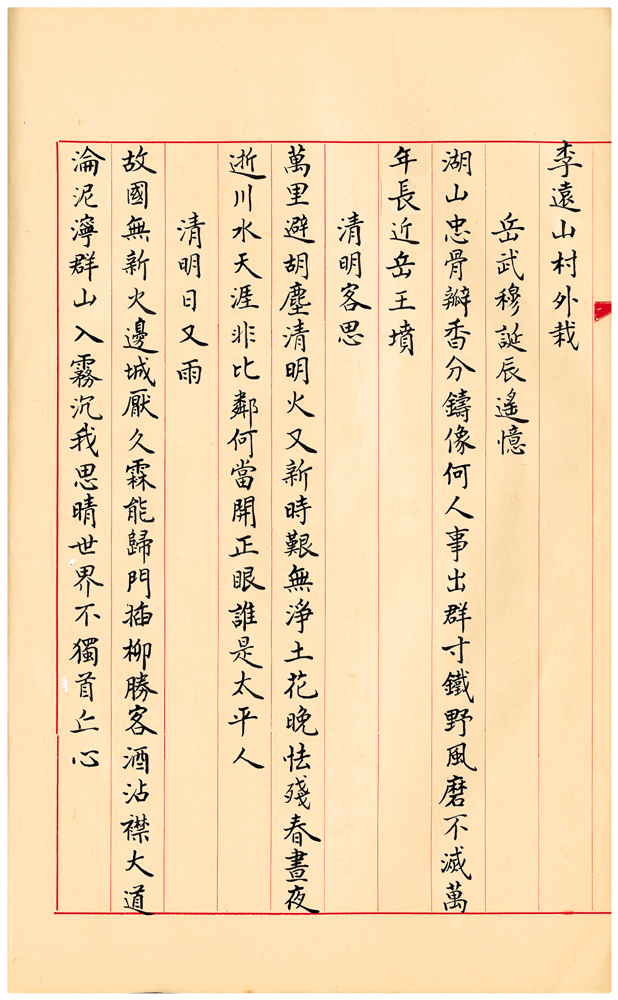 李遠山村外栽
岳武穆誕辰遙憶
湖山忠骨瓣香分鑄像何人事出群寸鐵野風磨不滅萬
年長近岳王墳
清明客思
萬里避胡塵清明火又新時艱無淨土花晚怯殘春晝夜
逝川水天涯非比鄰何當開正眼誰是太平人
清明日又雨
故國無新火邊城厭久霖能歸門插柳勝客酒沾襟大道
淪泥濘群山入霧沉我思晴世界不獨首丘心